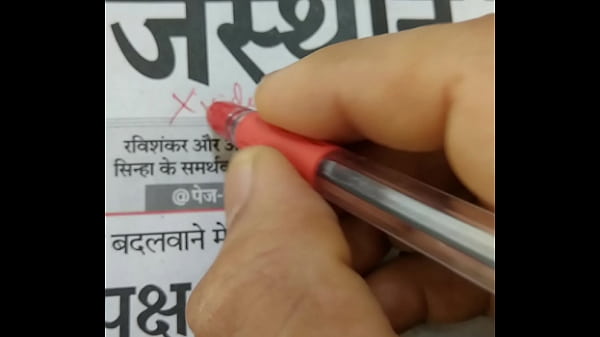 जस्थान
रविशंकर और
सिन्हा के
@पेज-
बदलवाने में
पक्ष